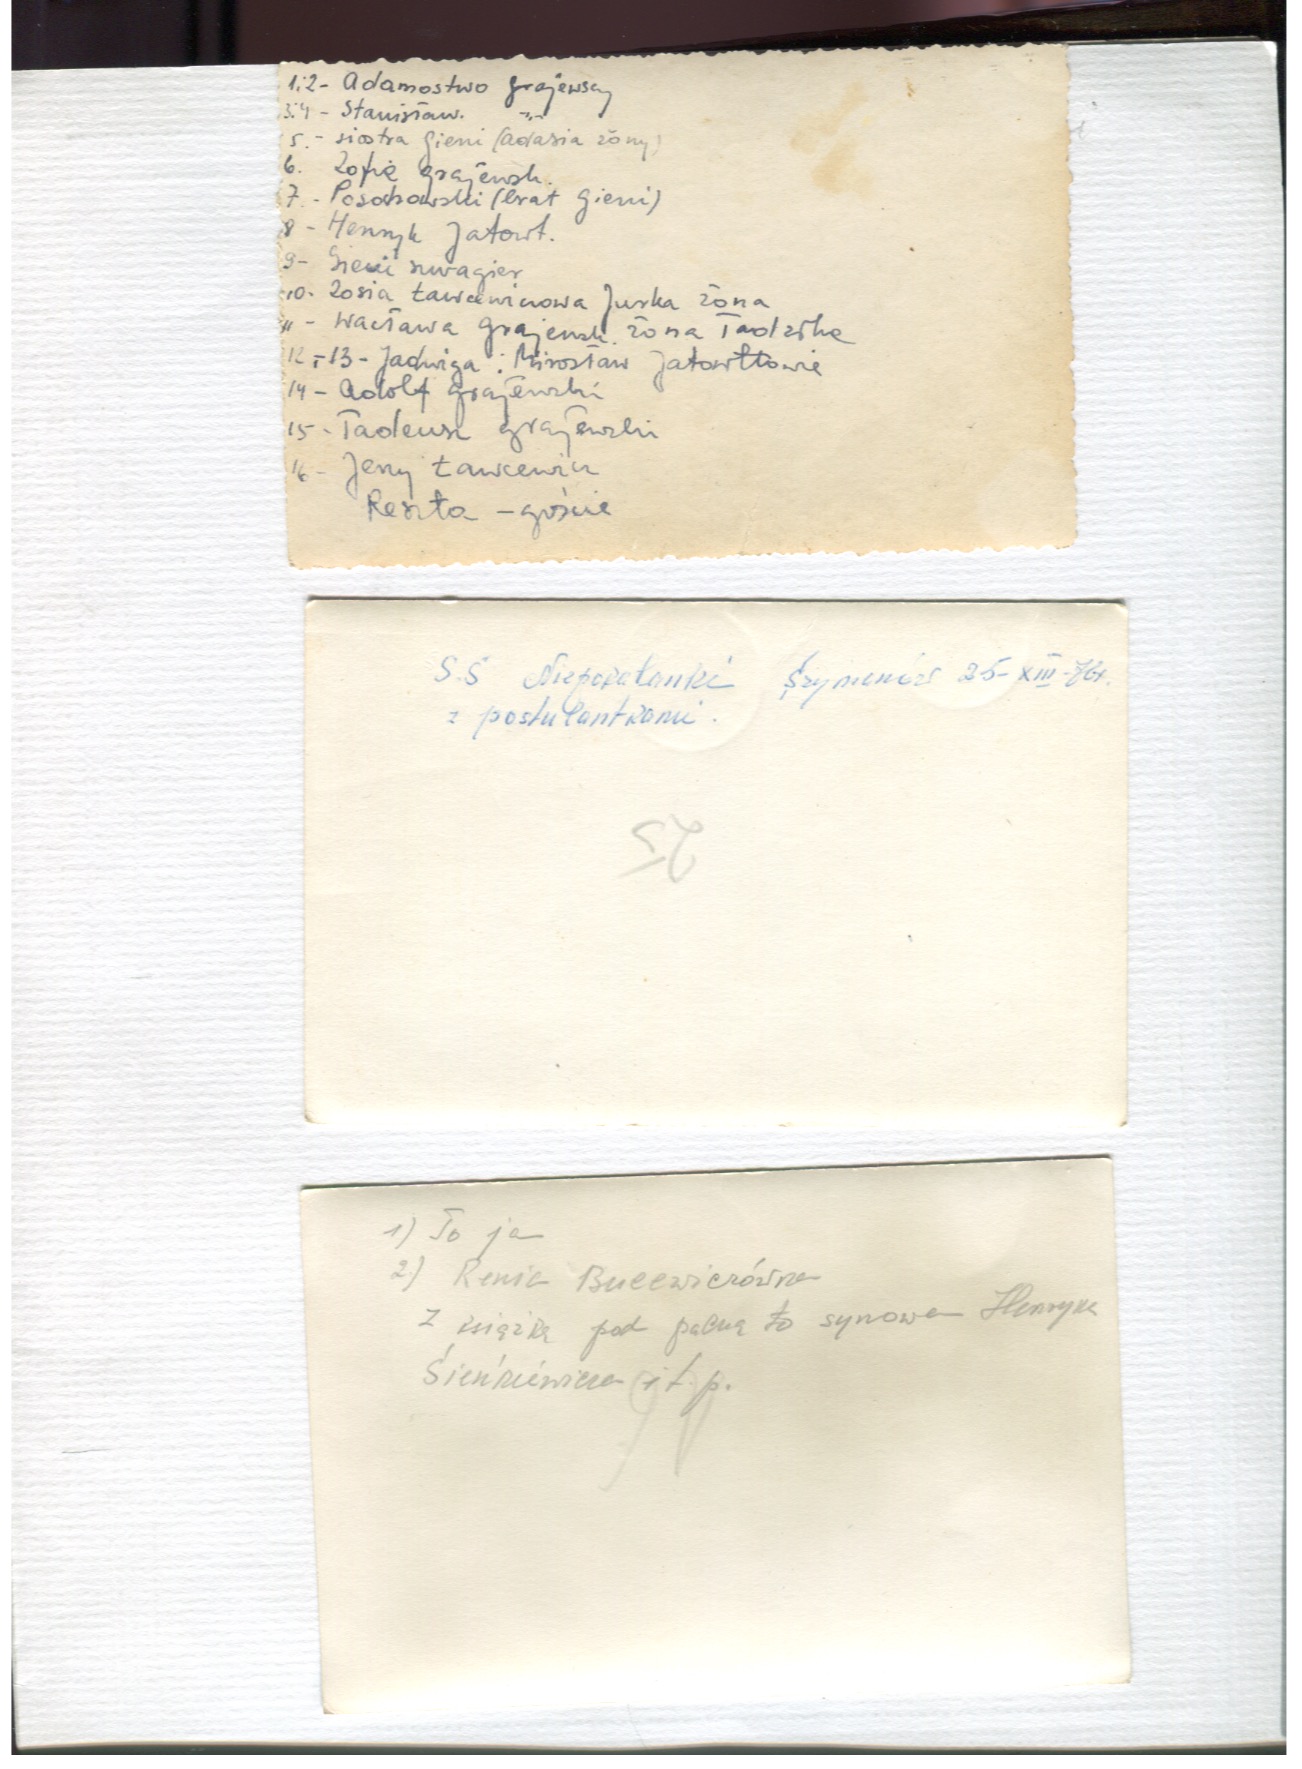 1.2 - Adamostwo Grajewscy
3.4 - Stanisław. -„-
5. - siostra Gieni (Adasia żony)
6. Zofia Grajewsk.
7. - Posochowski (brat Gieni)
8 - Henryk Jatowt.
9 - Gieni szwagier
10. Zosia Ławcewiczowa Jurka żona
11 - Wacława Grajewsk. żona Tadzika
12 i 13 - Jadwiga i Mirosław Jatowttowie
14 - Adolf Grajewski
15 - Tadeusz Grajewski
16 - Jerzy Ławcewicz
Reszta - goście
S.S Niepokalanki Szymanów 25-XIII-76r.
z postulantkami.
25
1) To ja
2) Renia Bucewiczówna
Z książką pod pachą to synowa Henryka
Sienkiewicza i t. p.